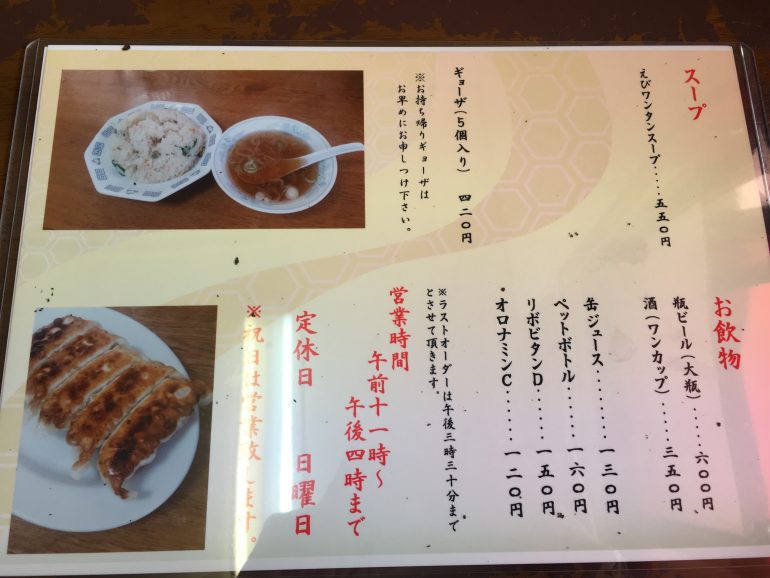 スープ
えびワンタンスープ・・・・・五五〇円
ギョーザ(5個入り) 四二〇円
※お持ち帰りギョーザは
お早めにお申しつけ下さい。
お飲物
瓶ビール(大瓶)・・・・・六〇〇円
酒(ワンカップ)・・・・三五〇円
缶ジュース・・・・・・・一三〇円
ペットボトル・・・・・一六〇円
リポビタンD・・・・・一五〇円
オロナミンC・・・・・・一二〇円
※ラストオーダーは午後三時三十分まで
とさせて頂きます
営業時間
午前十一時~
午後四時まで
定休日 日曜日
※祝日は営業致します。